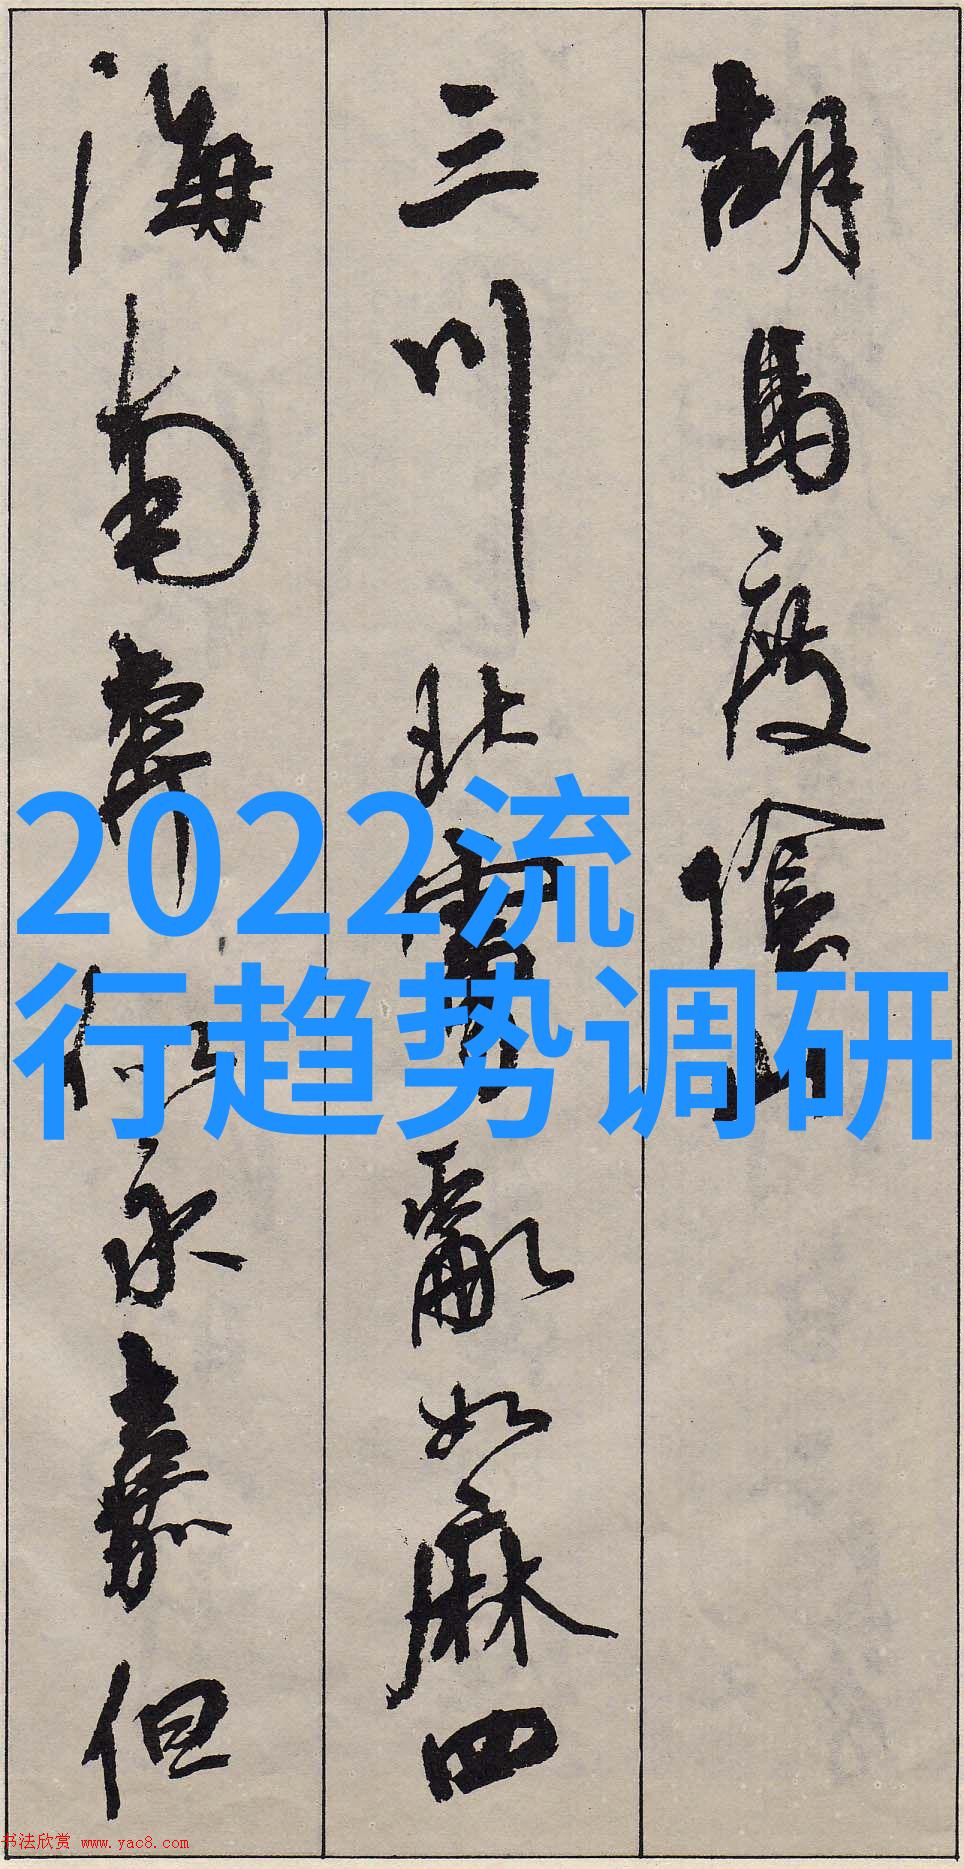 胡马度陰山
三川北虜亂如麻四
海南奔似永嘉但
2022流
行趋势调研
书法欣赏 www.yac8.com